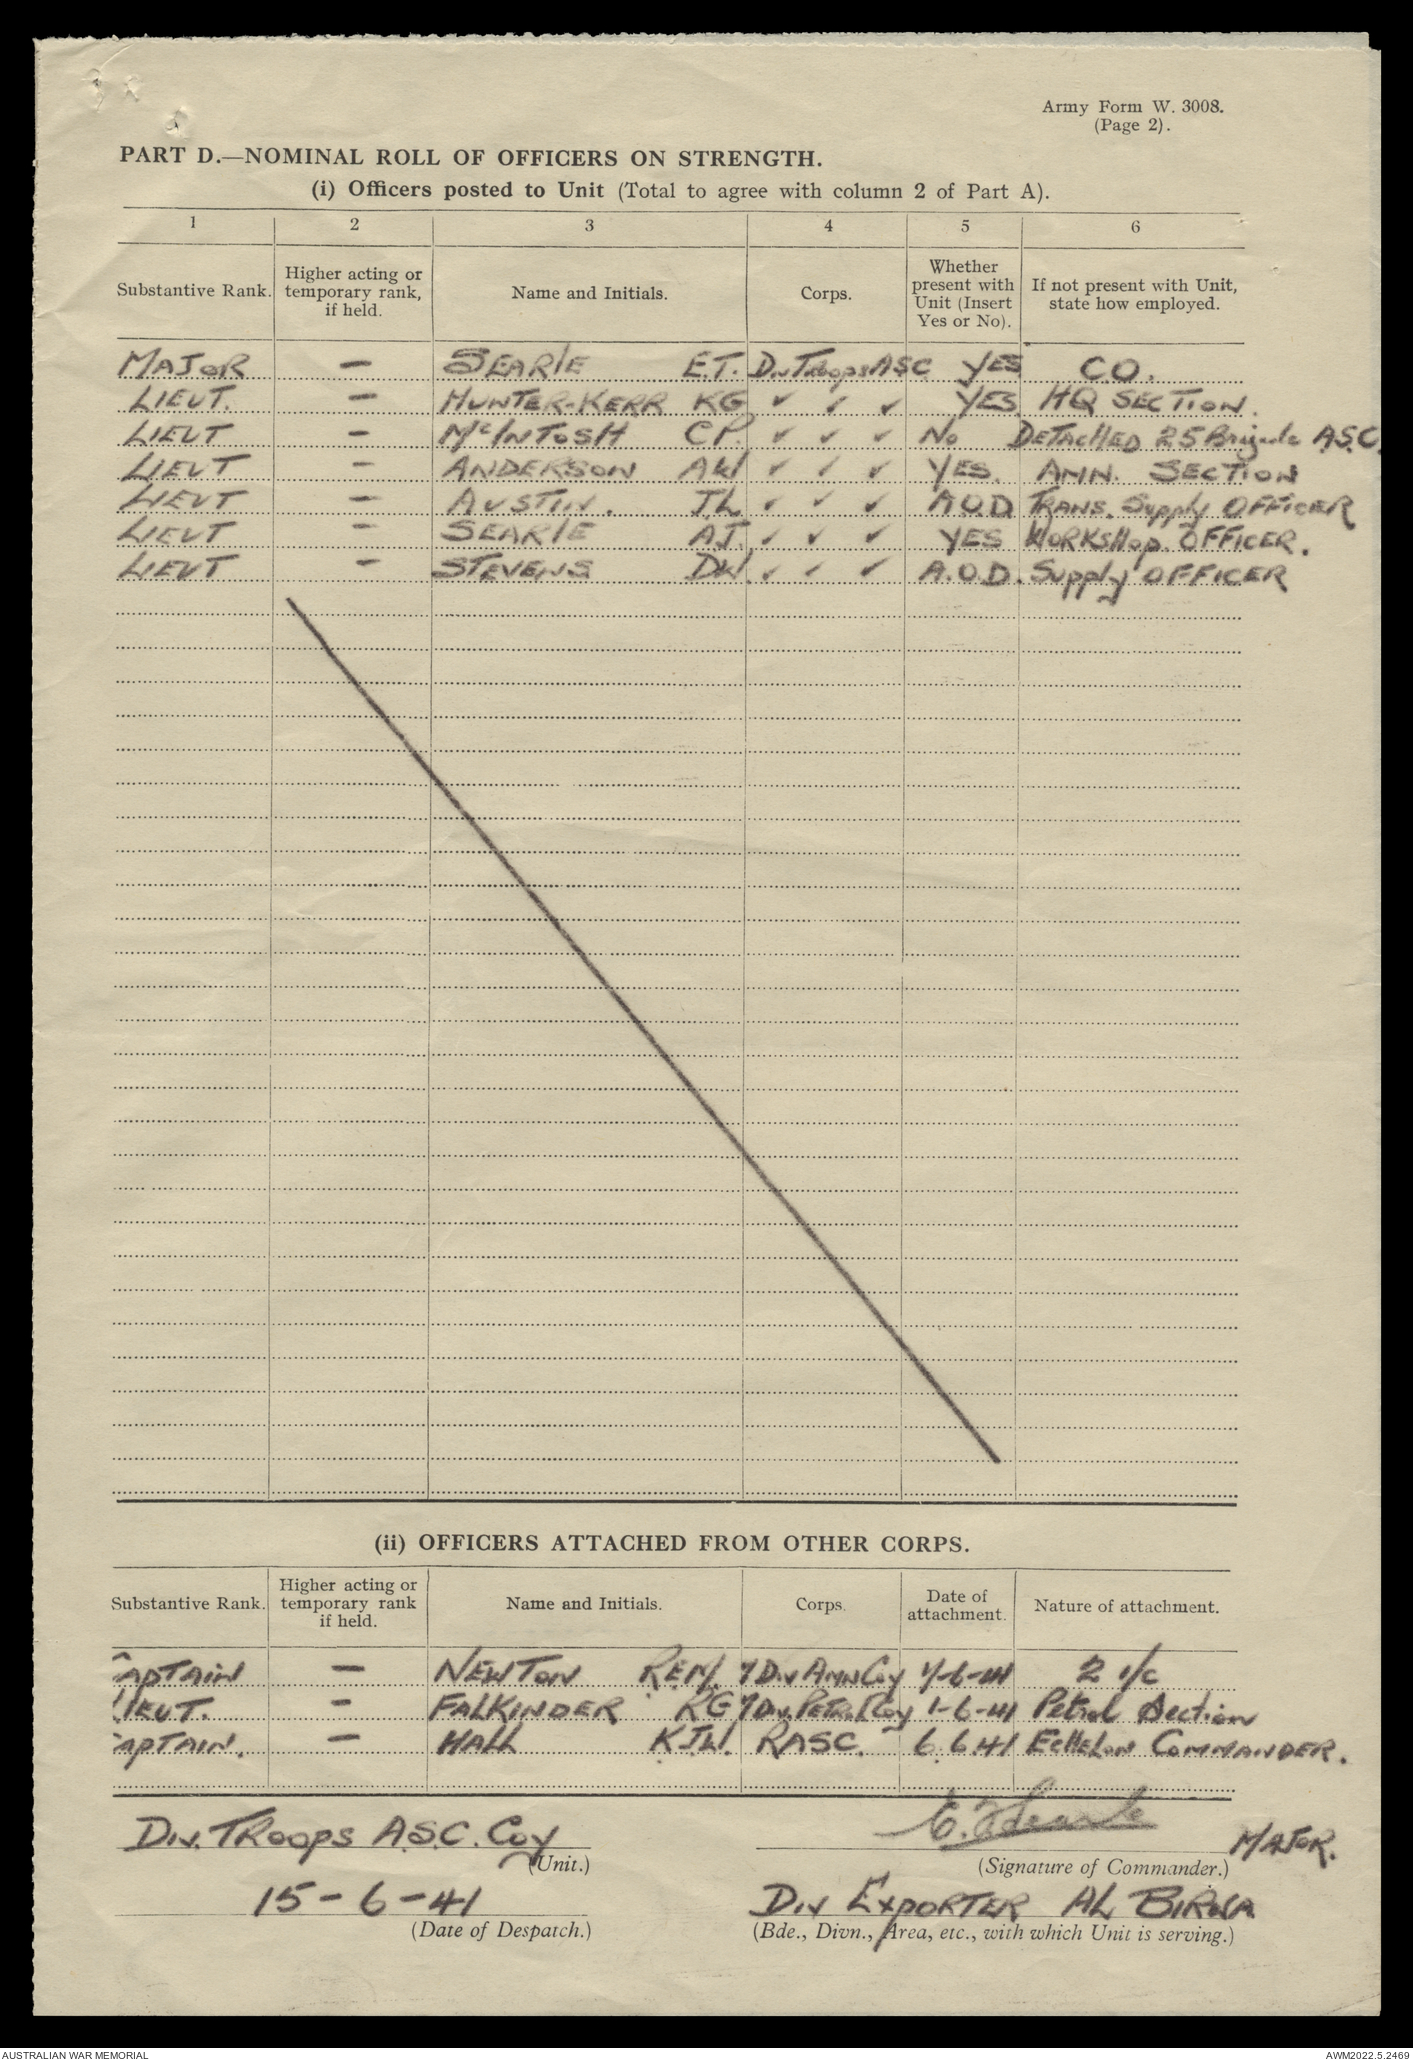 Army Form W. 3008.
(Page 2).
PART D.—NOMINAL ROLL OF OFFICERS ON STRENGTH.
(i) Officers posted to Unit (Total to agree with column 2 of Part A).
1 2 3 4 5 6
Substantive Rank. Higher acting or temporary rank, if held. Name and Initials. Corps. Whether present with Unit (Insert Yes or No). If not present with Unit, state how employed.
MAJOR — SEARLE E.T. Div Troops ASC YES C.O.
LIEUT. — HUNTER-KERR KG ✓ ✓ ✓ YES HQ SECTION.
LIEUT — McINTOSH C.P. ✓ ✓ ✓ No DETACHED 25 Brigade A.S.C.
LIEUT — ANDERSON AW ✓ ✓ ✓ YES. AMN. SECTION
LIEUT — AUSTIN. J.L ✓ ✓ ✓ A.O.D TRANS. Supply OFFICER
LIEUT — SEARLE AJ. ✓ ✓ ✓ YES WORKSHOP OFFICER.
LIEUT — STEVENS DW. ✓ ✓ ✓ A.O.D. Supply OFFICER
(ii) OFFICERS ATTACHED FROM OTHER CORPS.
Substantive Rank. Higher acting or temporary rank if held. Name and Initials. Corps. Date of attachment. Nature of attachment.
CAPTAIN — NEWTON R.E.M. 7 Div AMN Coy 1-6-41 2 i/c
LIEUT. — FALKINDER RG 7 Div. PETROL Coy 1-6-41 Petrol Section
CAPTAIN. — HALL KJW. RASC. 6.6.41 ECHELON COMMANDER.
DIV. TROOPS A.S.C. Coy
(Unit.)
E. T. Searle MAJOR.
(Signature of Commander.)
15-6-41
(Date of Despatch.)
DIV EXPORTER AL BIRWA
(Bde., Divn., Area, etc., with which Unit is serving.)
AUSTRALIAN WAR MEMORIAL
AWM2022.5.2469